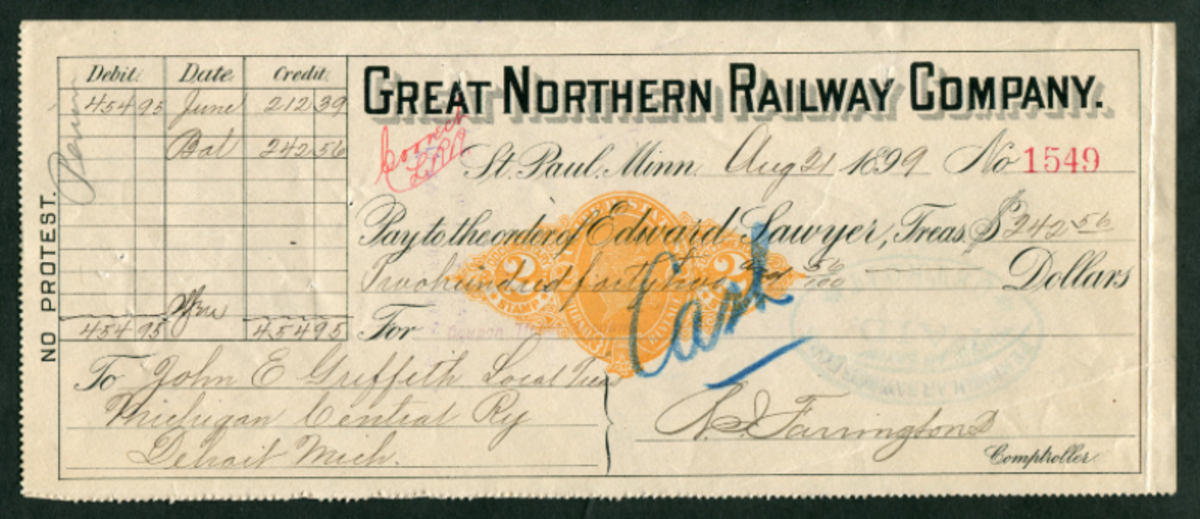 GREAT NORTHERN RAILWAY COMPANY.
Debit Date Credit
454 95 June 212 39
Bal 242 56
454 95 454 95
NO PROTEST.
St. Paul, Minn. Aug 21 1899 No 1549
Pay to the order of Edward Sawyer, Treas. $ 242 56
Two hundred forty two and 56/100 Dollars
2 STAMP 2
Cash
For
To John E Griffith Local Treas
Michigan Central Ry
Detroit Mich.
R. I. Farrington
Comptroller